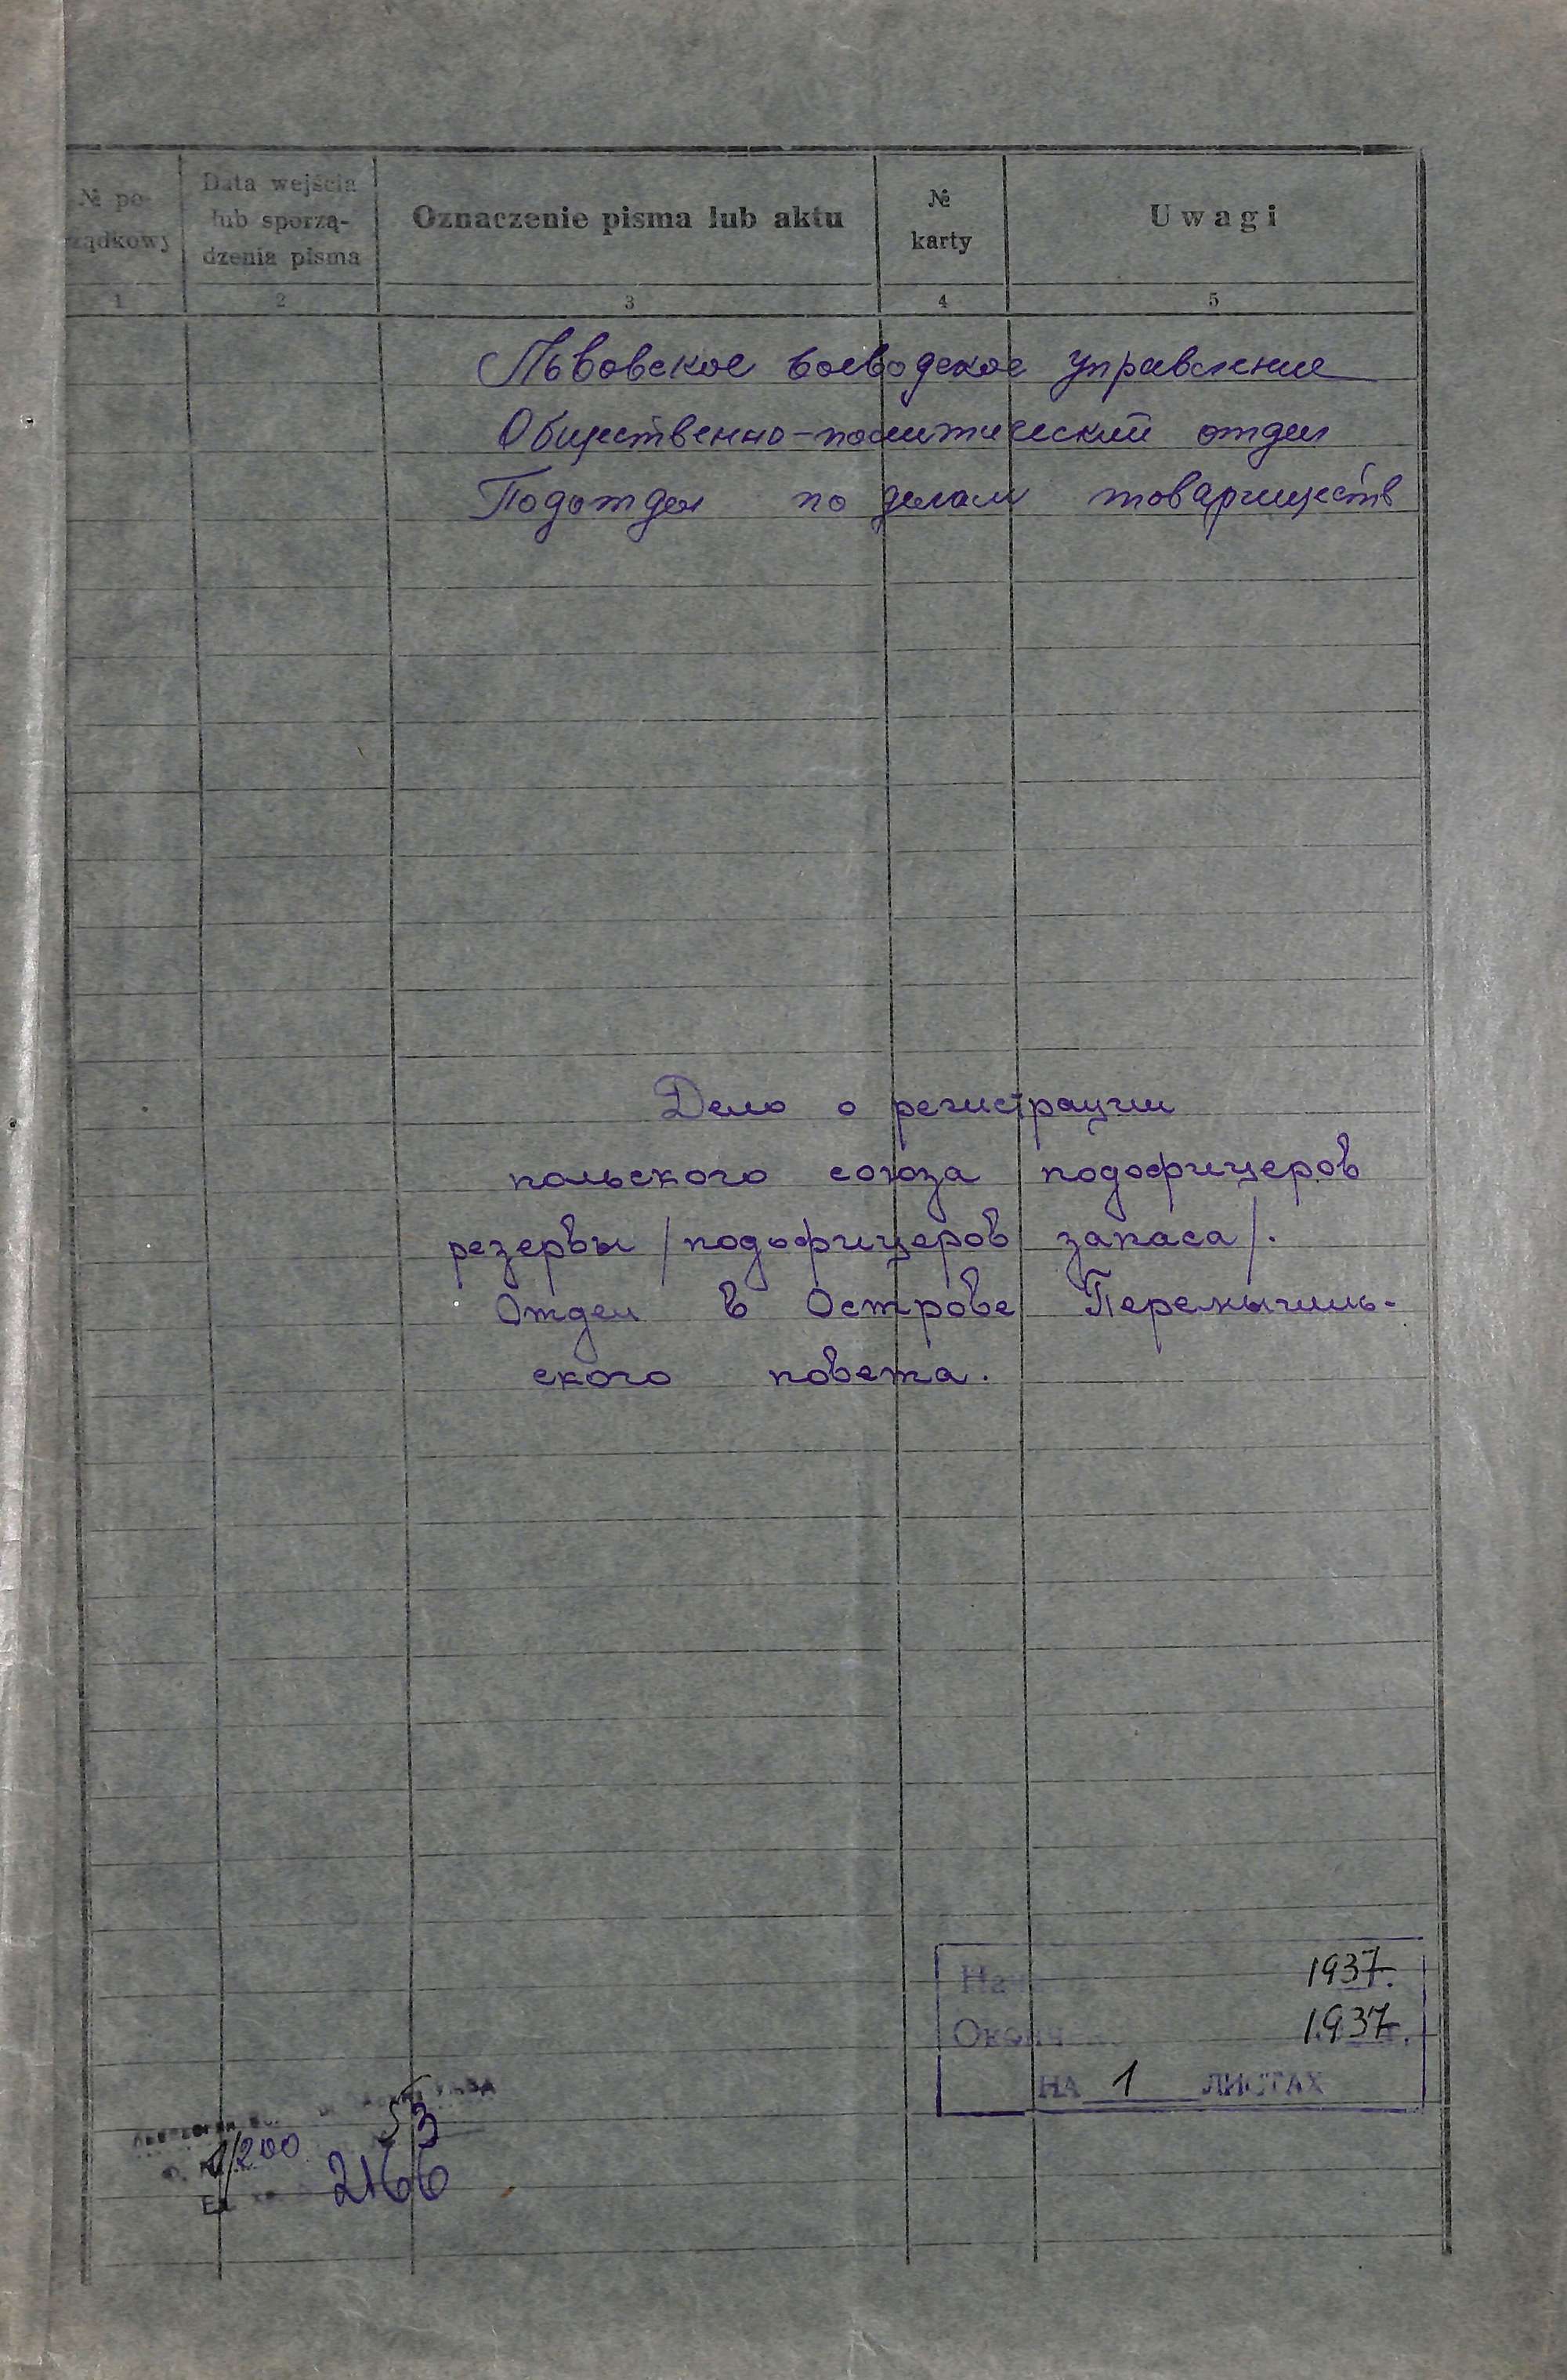 № po-
rządkowy
Data wejścia
lub sporzą-
dzenia pisma
Oznaczenie pisma lub aktu
№
karty
Uwagi
1 2 3 4 5
Львовское воеводское управление
Общественно-политический отдел
Подотдел по делам товариществ
Дело о регистрации
польского союза подофицеров
резервы /подофицеров запаса/.
Отдел в Острове Перемышль-
ского повета.
1937.
1937
НА 1 ЛИСТАХ
53
1/200
2166